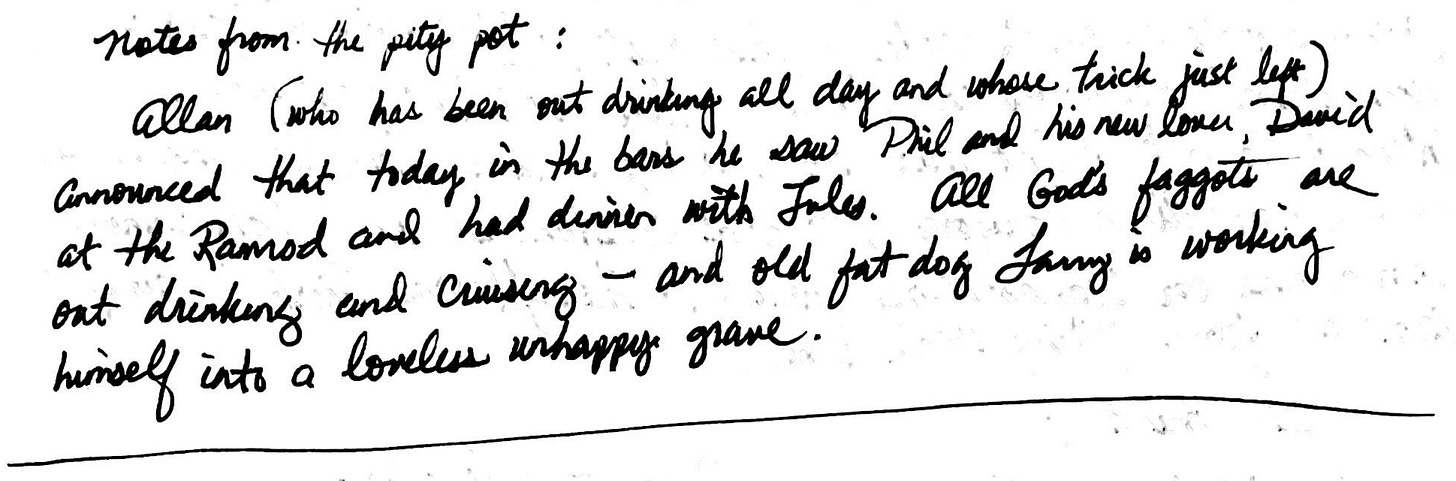 notes from the pity pot :
Allan (who has been out drinking all day and whose trick just left)
announced that today in the bars he saw Phil and his new lover, David
at the Ramrod and had dinner with Jules. All God's faggots are
out drinking and cruising – and old fat dog Larry is working
himself into a loveless unhappy grave.